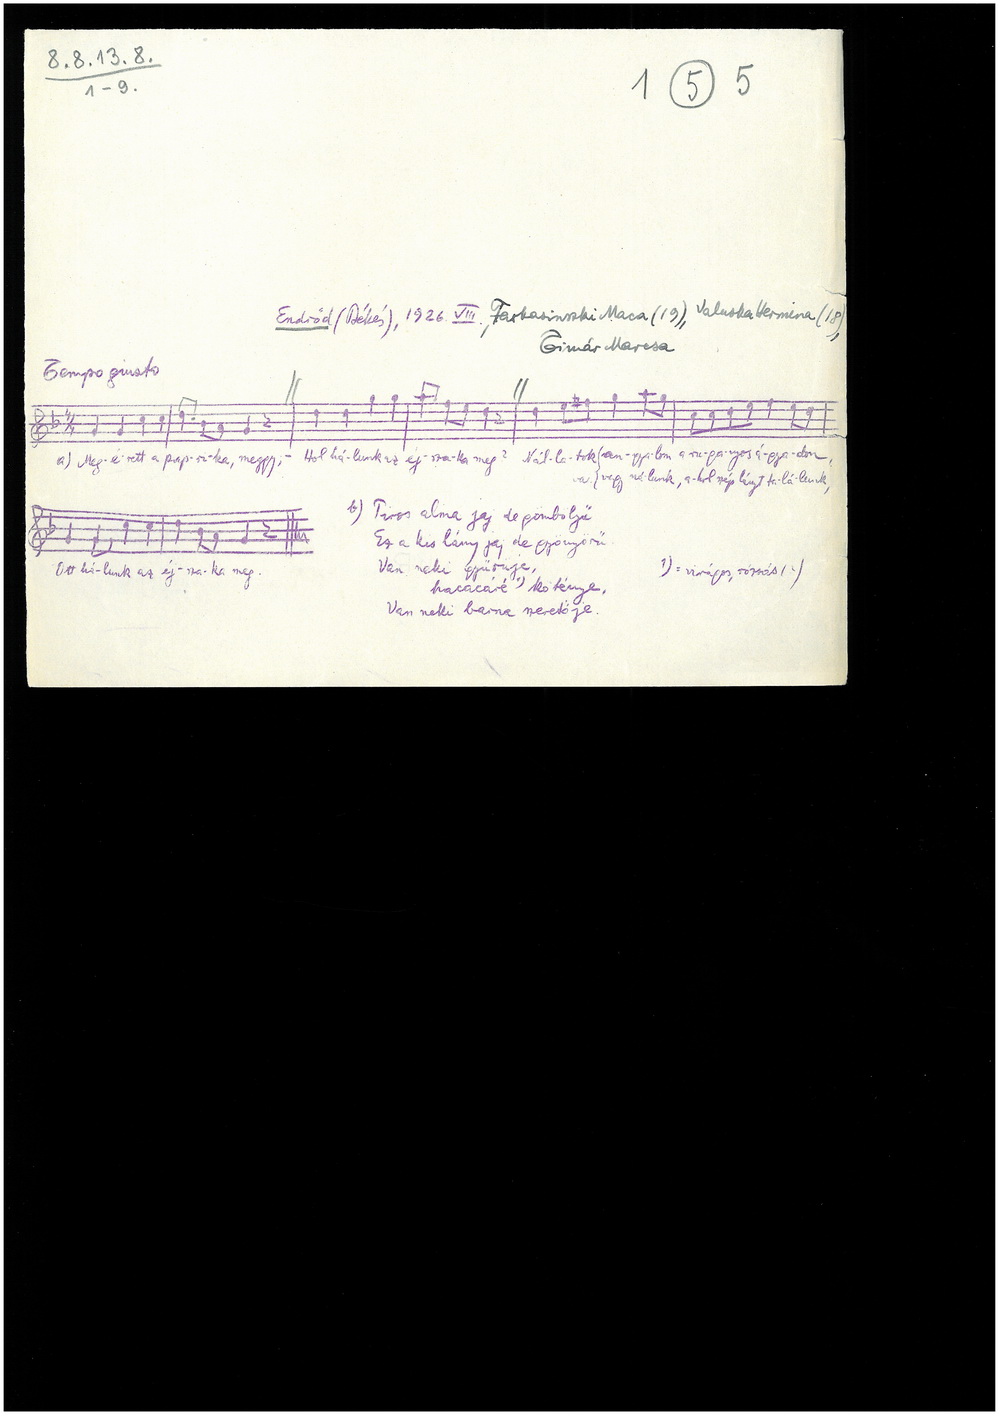 8.8.13.8.
1-9.
1 (5) 5
Endrőd (Békés), 1926 VIII., Farkasinszki Maca (19), Valuska Hermina (18),
Timár Marcsa
Tempo giusto
a) Meg-é-rett a pap-ri-ka, meggy, - Hol há-lunk az éj-sza-ka meg? Nál-la-tok an-gya-lom a ru-ga-nyos á-gya-don,
va. vagy ná-lunk, a-hol szép lányt ta-lá-lunk,
Ott há-lunk az éj-sza-ka meg.
b) Piros alma jaj de gömbölyű
Ez a kis lány jaj de gyönyörű.
Van neki gyűrűje,
hacacáré 1) köténye,
Van neki barna szeretője.
1) = virágos, rózsás (?)